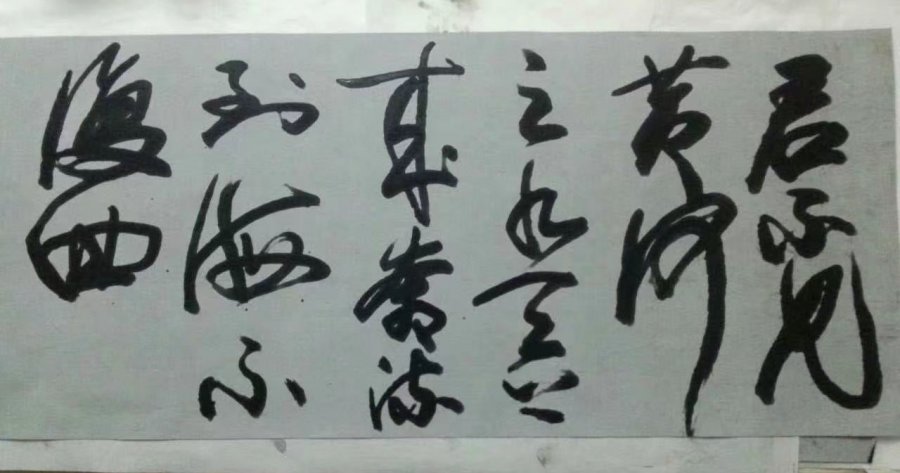 君不見
黄河
之水天上
来奔流
到海不
復回